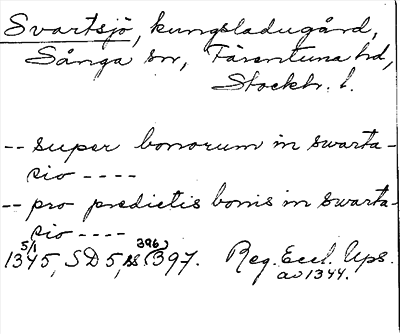 Svartsjö, kungsladugård,
Sånga sn, Färentuna hd,
Stockh. l.
-- super bonorum in swarta-
sio ----
-- pro predictis bonis in swarta-
sio ----
5/1 1345, SD 5, s. (396) 397. Reg. Eccl. Ups.
av 1344.